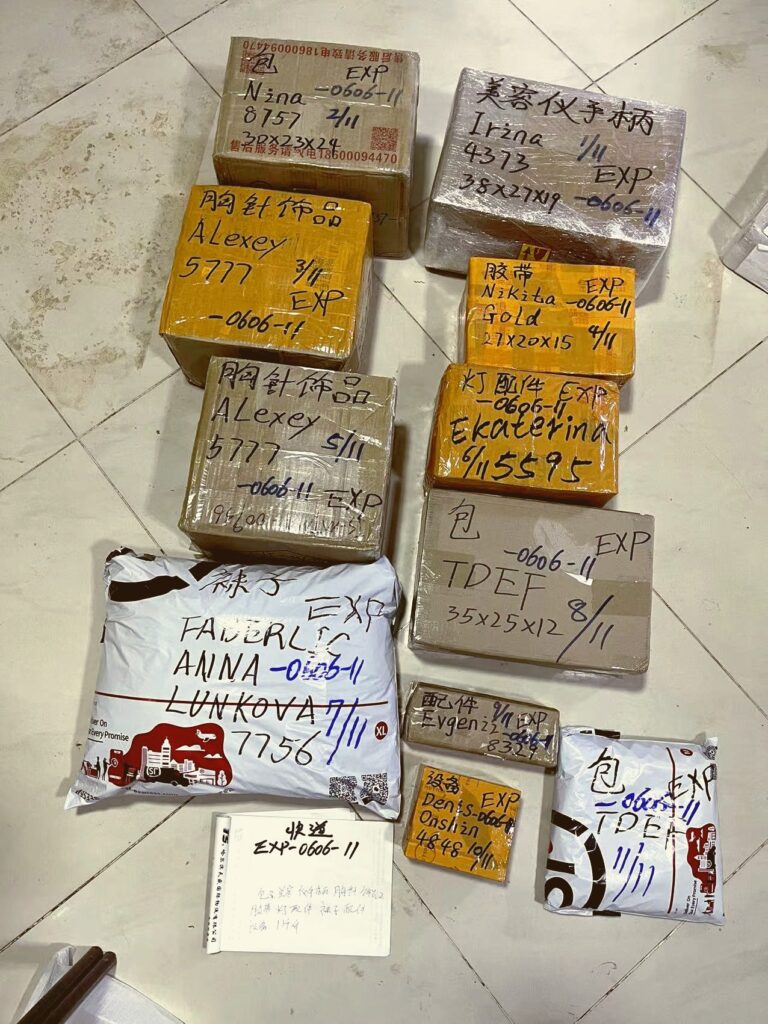 售后服务请致电18600094470
包 EXP
Nina -0606-11
8757 2/11
30x23x24
售后服务请致电18600094470
美容仪手柄
Irina 1/11
4373 EXP
38x27x19 -0606-11
胸针饰品
ALexey
5777 3/11
EXP
-0606-11
胶带 EXP
Nikita -0606-11
Gold
27x20x15 4/11
胸针饰品
ALexey
5777 5/11
-0606-11 EXP
灯配件 EXP
-0606-11
Ekaterina
6/11 5595
包 EXP
-0606-11
TDEF
35x25x12 8/11
袜子
EXP
FABERLIC
ANNA -0606-11
LUNKOVA 7/11
7756
XL
配件 9/11 EXP
Evgenii -0606-11
8327
设备 EXP
Denis -0606-11
Onshin
4848 10/11
包 EXP
-0606-11
TDEF
11/11
快运
EXP-0606-11